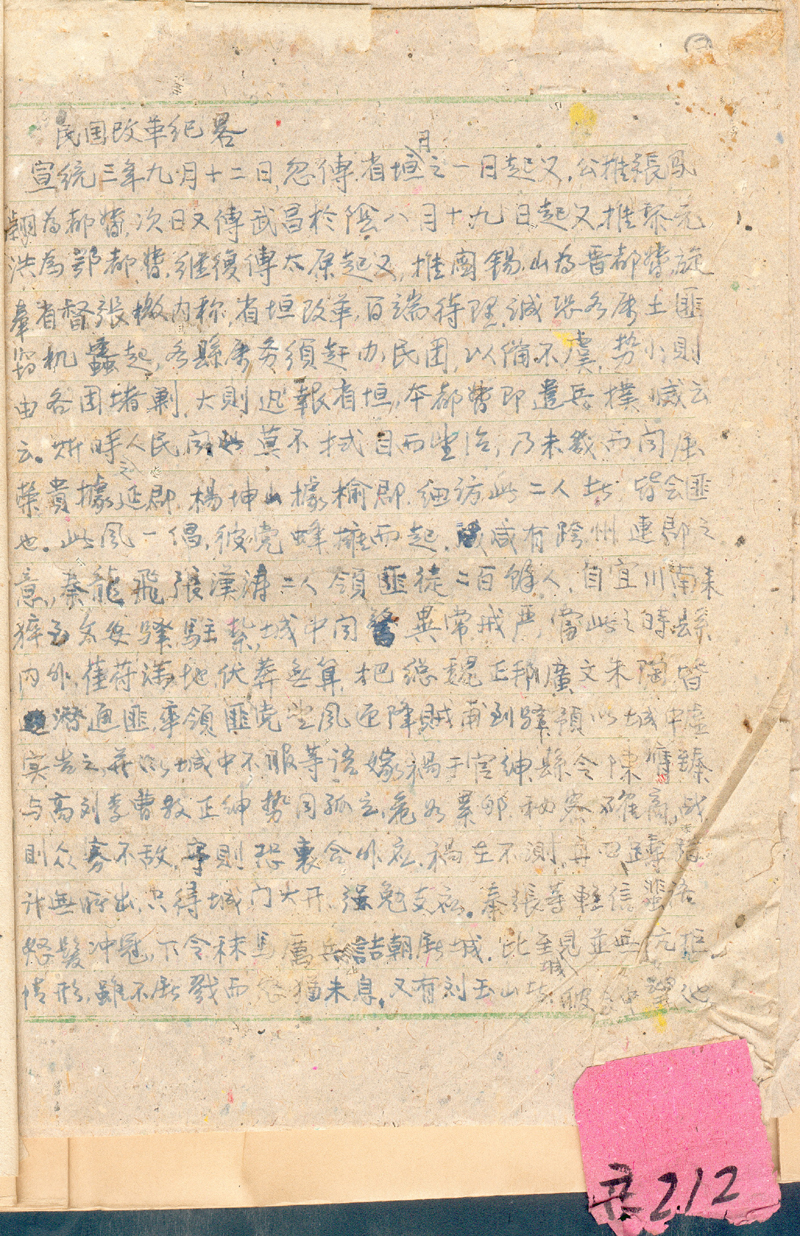 民国改革纪畧
宣統三年九月十二日,忽傳省垣月之一日起义,公推張鳳
翽為都督,次日又傳武昌於陰八月十九日起义,推黎元
洪為鄂都督,継復傳太原起义,推閻錫山為晋都督,旋
奉省督張檄内称,省垣改革,百端待理,誠恐各属土匪
乘机蠢起,各縣属务須赶办民团,以備不虞,势小则
由各团堵剿,大則迅報省垣,本都督即遣兵撲滅云
云。斯時人民間此莫不拭目而望治,乃未幾而間
榮貴據延郡,楊坤山據榆郡,細訪此二人者,皆会匪
也。此風一倡,彼党蜂擁而起,咸有跨州連郡之
意,秦龍飛張漢濤二人領匪徒二百餘人,自宜川南来
猝至文安驛駐紮,城中聞警異常戒严,當此之時縣
内外,萑苻满地,伏莽無算,把总魏正邦廣文朱陶皆
潜通匪,率領匪党望風迎降賊甫到驛預以城中虚
实告之,并以城中不服等语嫁禍于官紳,縣令陳
与高刘李曹数正紳势同孤立,危如累卵,秘密確商,战
則众寡不敌,守則恐裏合外应,禍生不測,再四
計無所出,只得城门大开,强勉支应。秦張等輕信蜚言
怒髮冲冠,下令秣馬厲兵詰朝屠城,比至城見並無抗拒
情形,雖不屠戮而怒猶未息,又有刘玉山者
共212